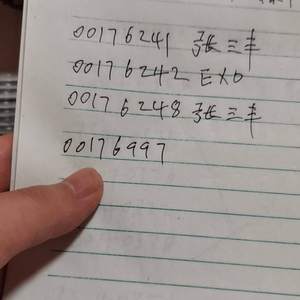 00176241 张三丰
00176242 EXO
00176248 张三丰
00176997